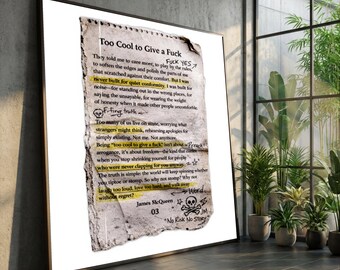 Too Cool to Give a Fuck
Fuck YES
They told me to care more, to play by the rules,
to soften the edges and polish the parts of me
that scratched against their comfort. But I was
never built for quiet conformity. I was built for
noise—for standing out in the wrong places, for
saying the unsayable, for wearing the weight
of honesty when it made other people uncomfortable.
F*ing truth
Too many of us live on mute, worrying what
strangers might think, rehearsing apologies for
simply existing. Not me. Not anymore.
Being "too cool to give a fuck" isn't about
arrogance, it's about freedom—the kind that
when you stop shrinking yourself for people
who were never clapping for you anyway.
The truth is simple: the world will keep spinning whether
you tiptoe or stomp. So why not stomp? Why not
laugh too loud, love too hard, and walk away
without regret?
James McQueen
03
No Risk No Story